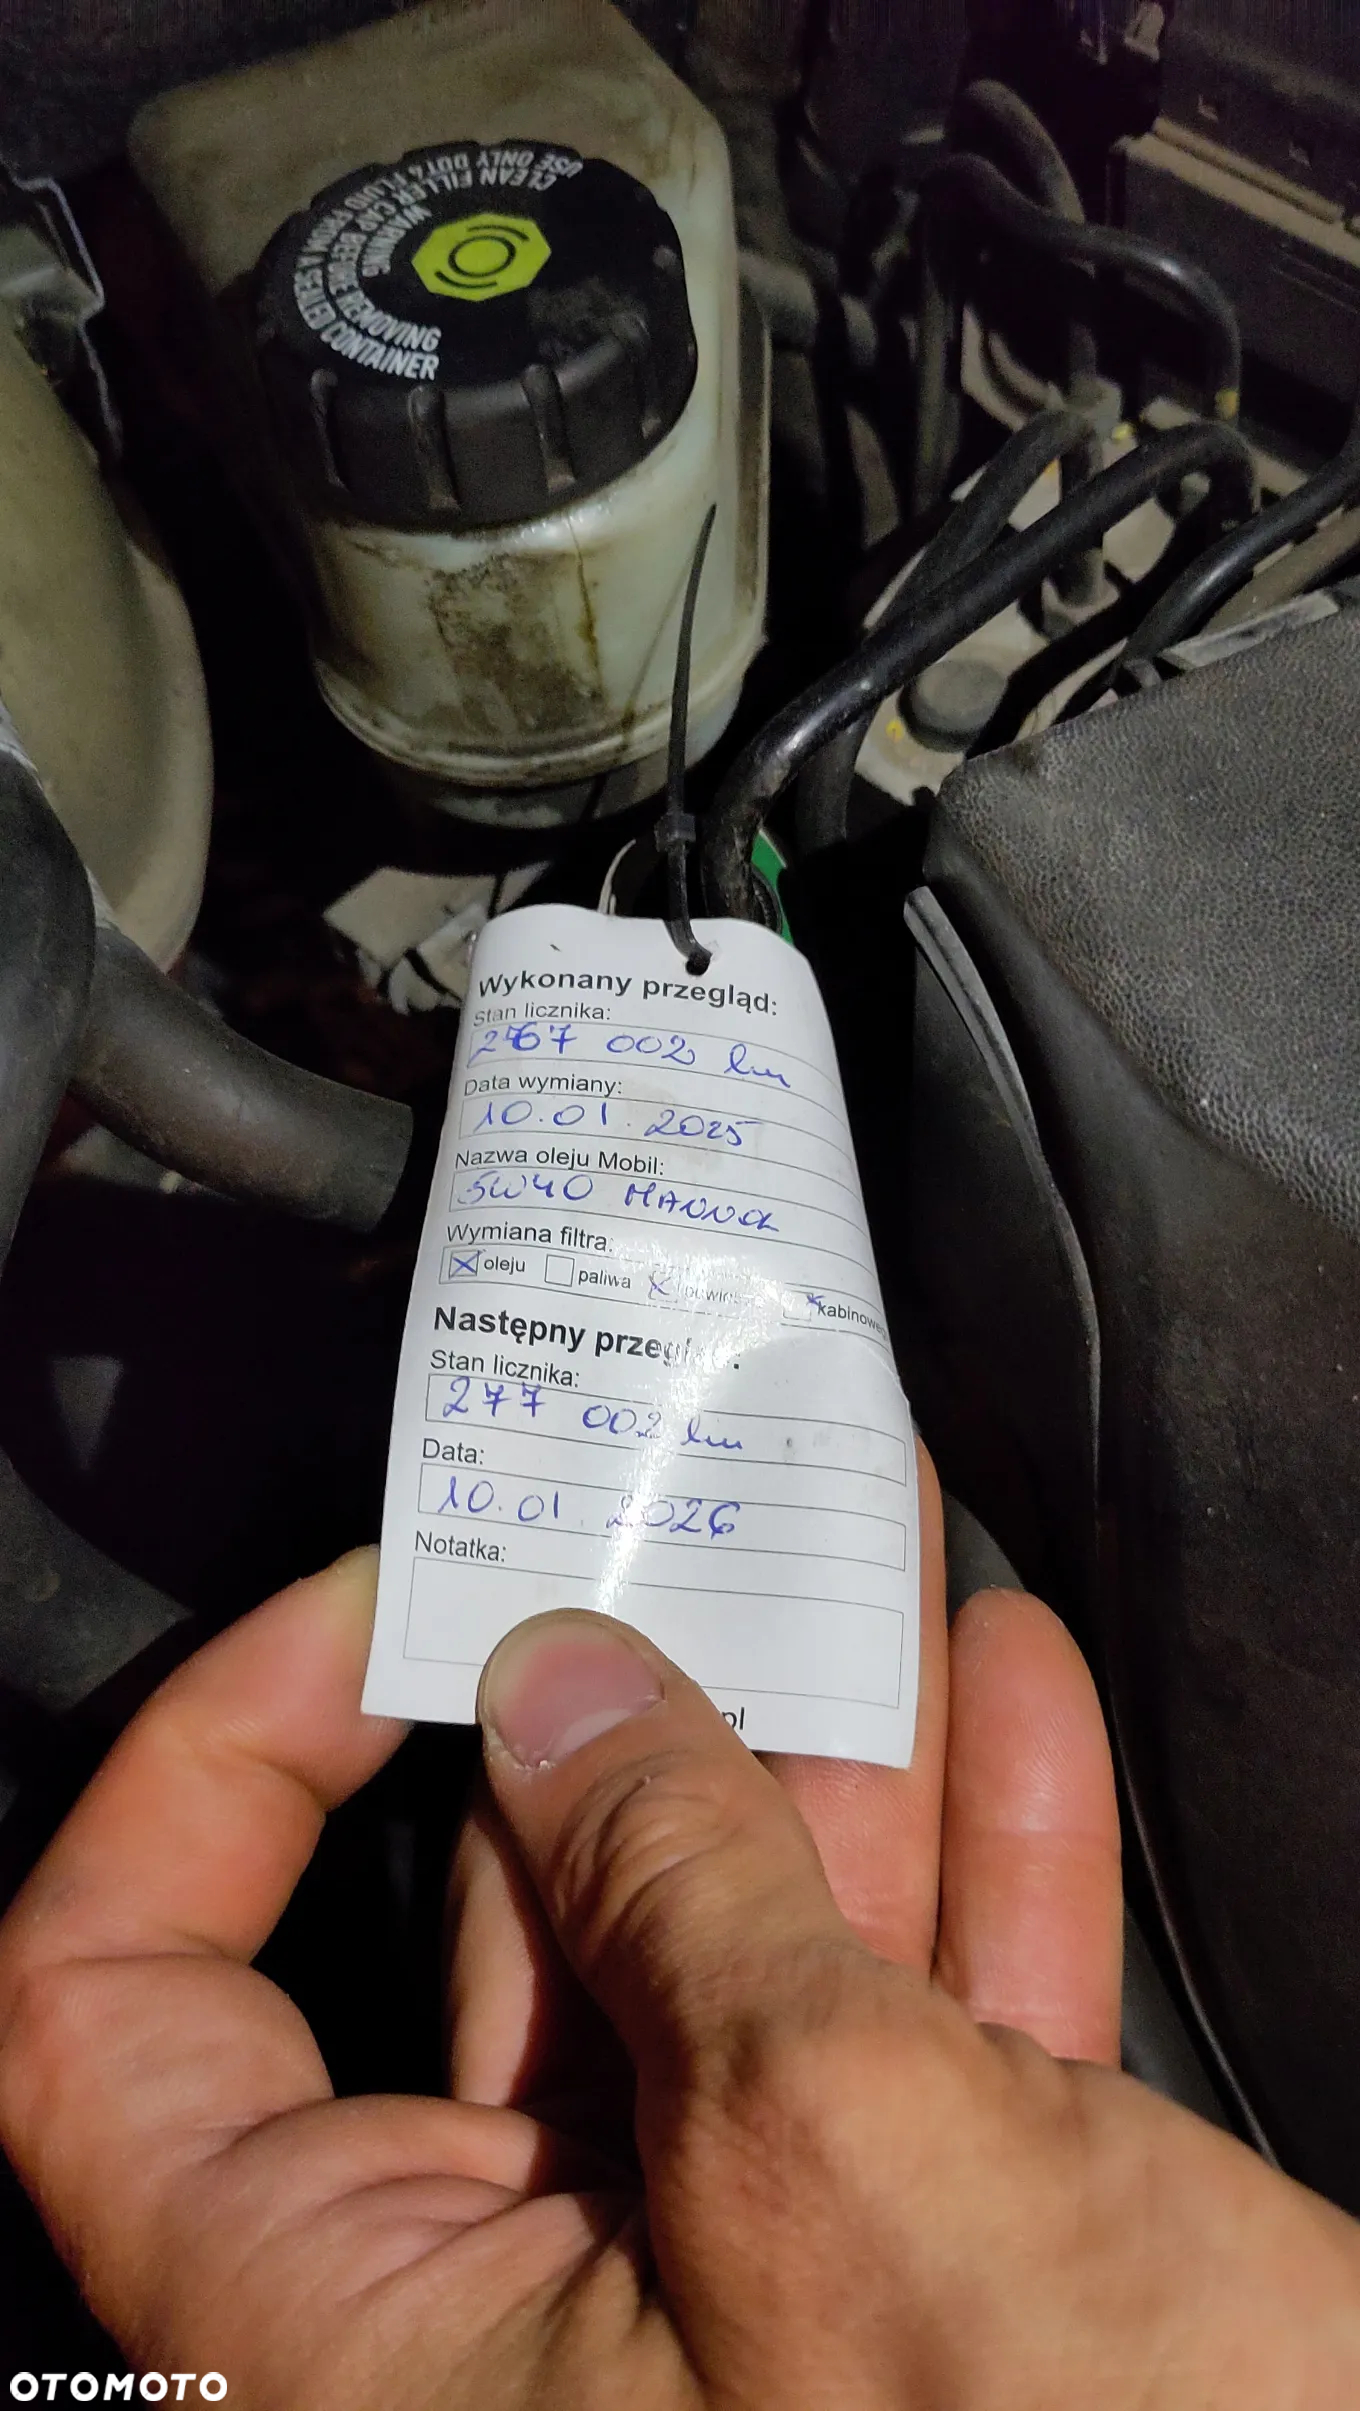 CLEAN FILLER CAP BEFORE REMOVING
USE ONLY DOT4 FLUID FROM A SEALED CONTAINER
WARNING
Wykonany przegląd:
Stan licznika:
267 002 km
Data wymiany:
10.01.2025
Nazwa oleju Mobil:
5W40 MANNOL
Wymiana filtra:
oleju paliwa kabinowego
Następny przegląd:
Stan licznika:
277 002 km
Data:
10.01.2026
Notatka:
pl
OTOMOTO